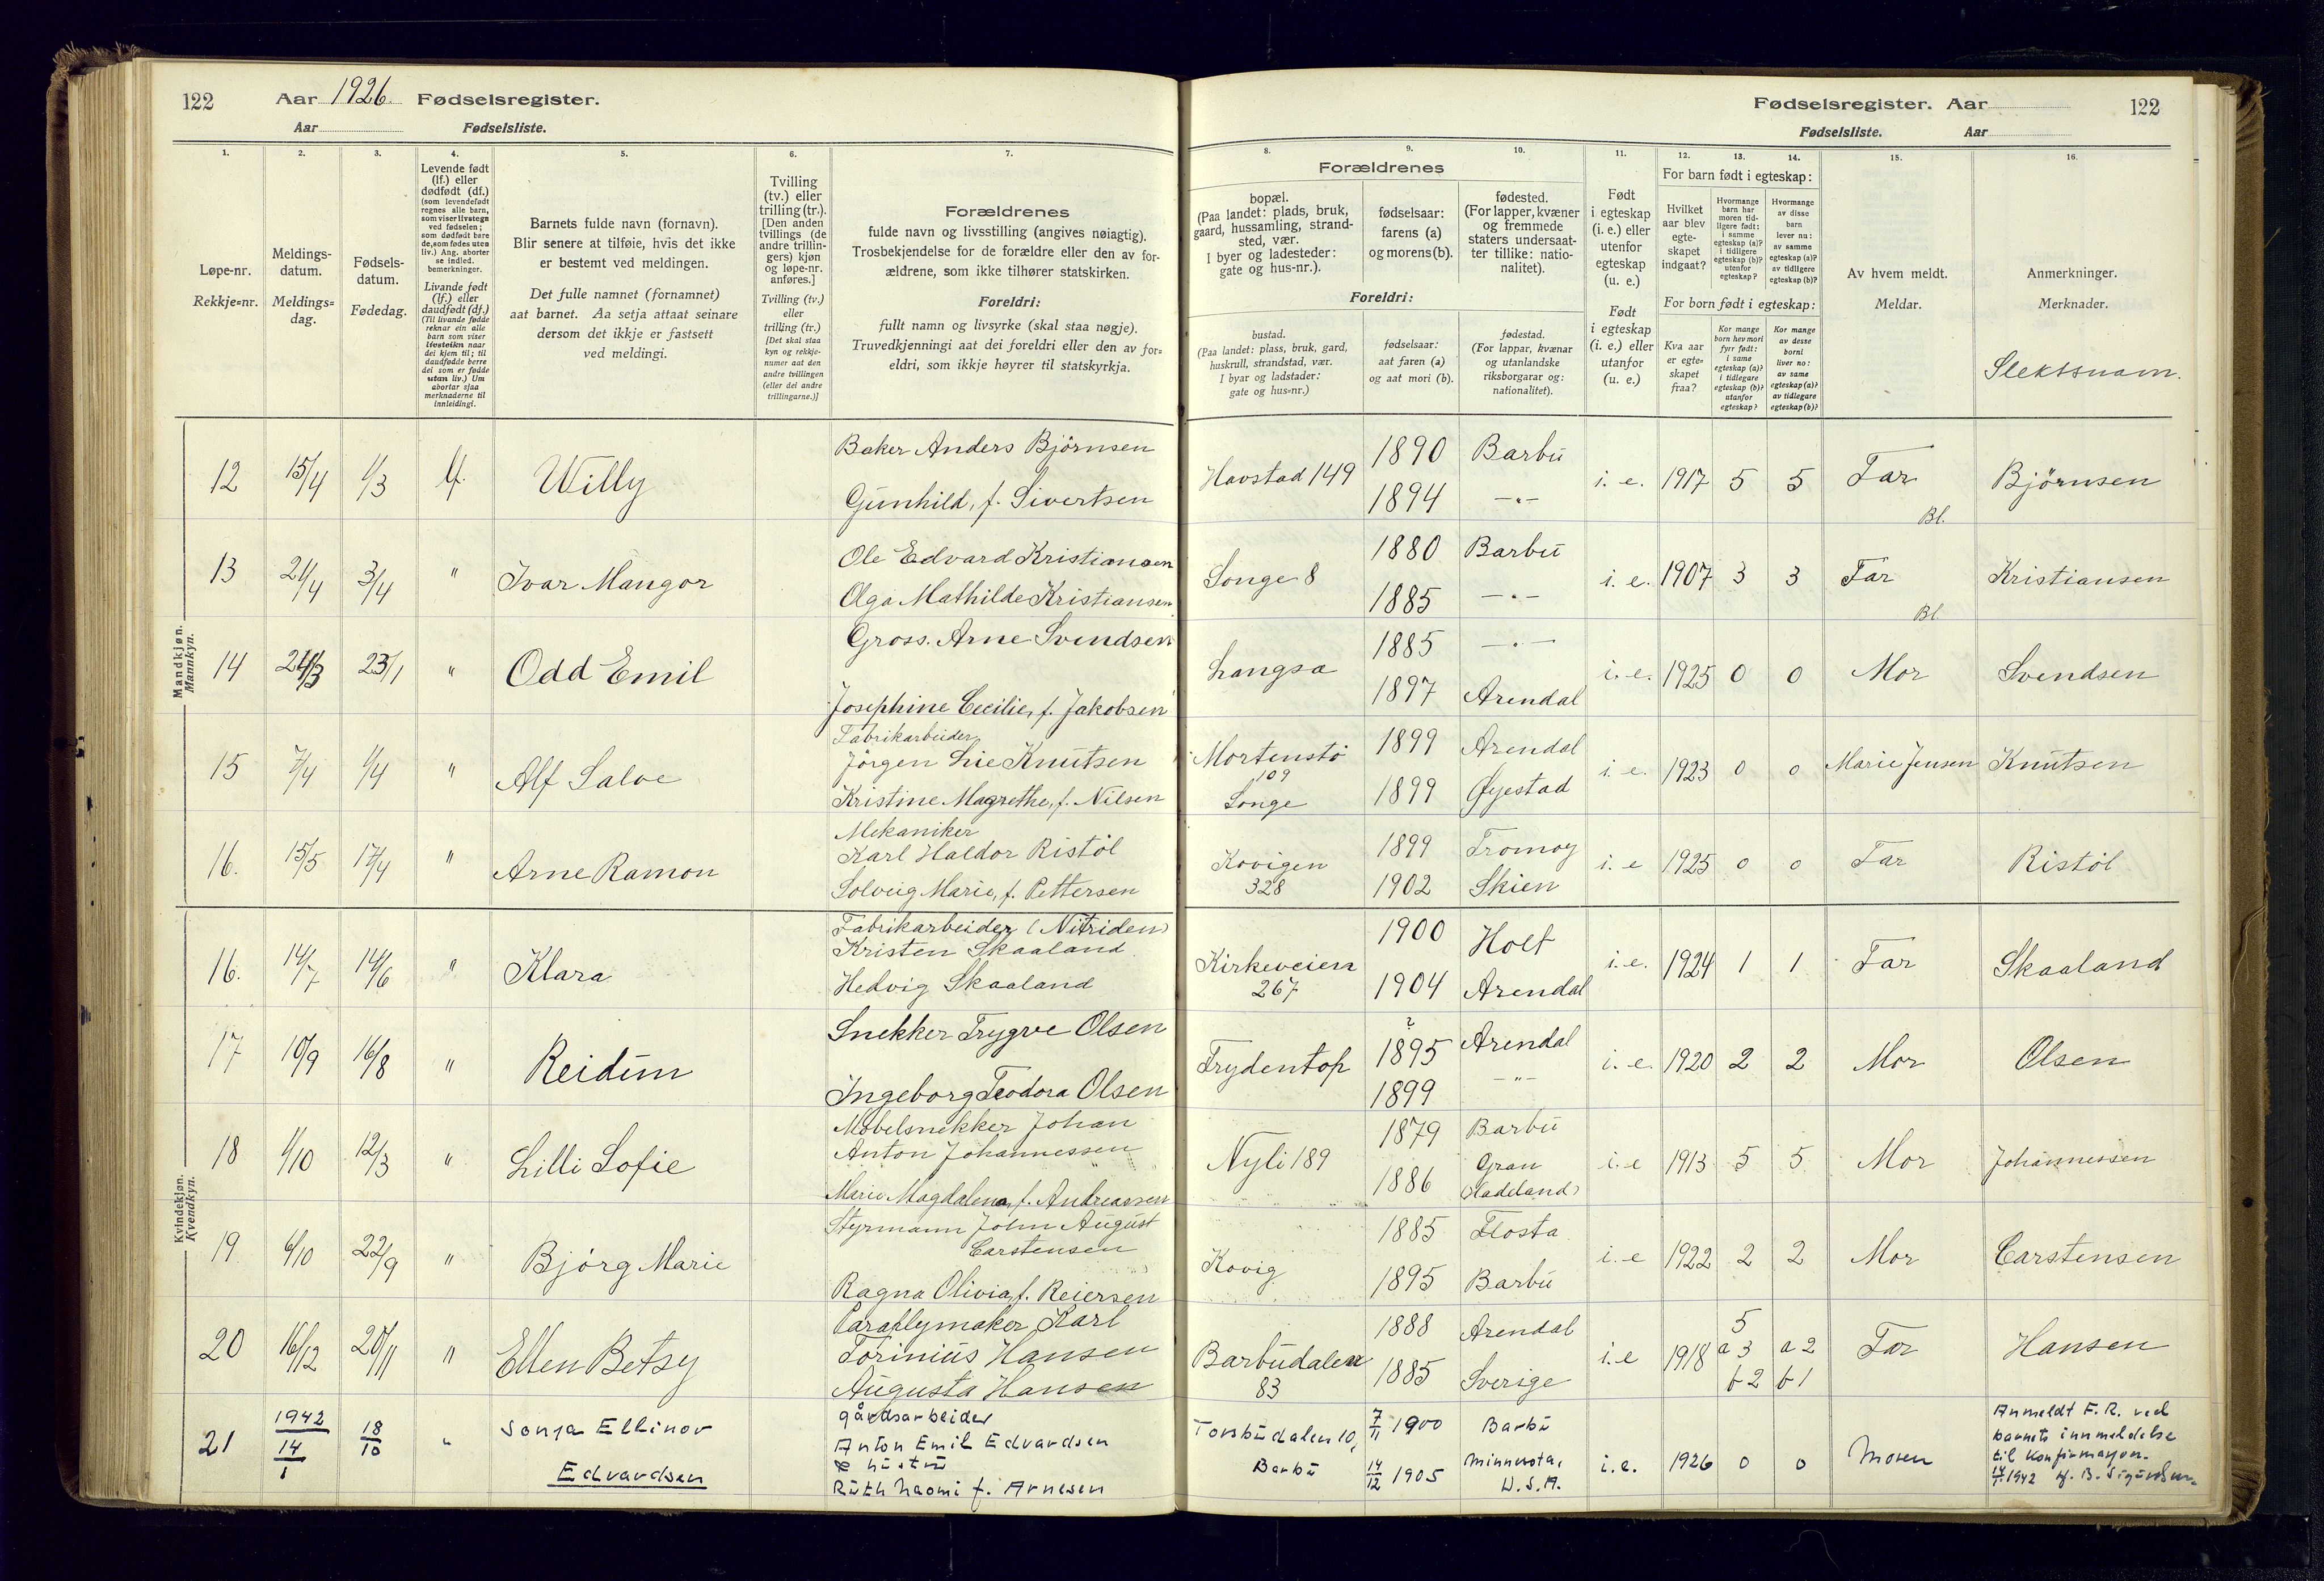 122 Aar 1926. Fødselsregister.
Aar Fødselsliste.
Fødselsregister. Aar 122
Fødselsliste. Aar
1. 2. 3. 4. 5. 6. 7.
Løpe-nr.
Rekkje=nr.
Meldings-
datum.
Meldings=
dag.
Fødsels-
datum.
Fødedag.
Levende født
(lf.) eller
dødfødt (df.)
(som levendefødt
regnes alle barn,
som viser livstegn
ved fødselen;
som dødfødt bare
de, som fødes uten
liv.) Ang. aborter
se indled.
bemerkninger.
Livande født
(lf.) eller
daudfødt (df.)
(Til livande fødde
reknar ein alle
barn som viser
livsteikn naar
dei kjem til; til
daudfødde berre
dei som er fødde
utan liv.) Um
abortar sjaa
merknaderne til
innleidingi.
Barnets fulde navn (fornavn).
Blir senere at tilføie, hvis det ikke
er bestemt ved meldingen.
Det fulle namnet (fornamnet)
aat barnet. Aa setja attaat seinare
dersom det ikkje er fastsett
ved meldingi.
Tvilling
(tv.) eller
trilling (tr.).
[Den anden
tvillings (de
andre trillin-
gers) kjøn
og løpe-nr.
anføres.]
Tvilling (tv.)
eller
trilling (tr.)
[Det skal staa
kyn og rekkje-
numer aat den
andre tvillingen
(eller dei andre
trillingarne.)]
Forældrenes
fulde navn og livsstilling (angives nøiagtig).
Trosbekjendelse for de forældre eller den av for-
ældrene, som ikke tilhører statskirken.
Foreldri:
fullt namn og livsyrke (skal staa nøgje).
Truvedkjenningi aat dei foreldri eller den av for=
eldri, som ikkje høyrer til statskyrkja.
8. 9. 10. 11. 12. 13. 14. 15. 16.
Forældrenes
bopæl.
(Paa landet: plads, bruk,
gaard, hussamling, strand-
sted, vær.
I byer og ladesteder:
gate og hus-nr.).
fødselsaar:
farens (a)
og morens (b).
fødested.
(For lapper, kvæner
og fremmede
staters undersaat-
ter tillike: natio-
nalitet).
Foreldri:
bustad.
(Paa landet: plass, bruk, gard,
huskrull, strandstad, vær.
I byar og ladstader:
gate og hus=nr.)
fødselsaar:
aat faren (a)
og aat mori (b).
fødestad.
(For lappar, kvænar
og utanlandske
riksborgarar og:
nationalitet).
Født
i egteskap
(i. e.) eller
utenfor
egteskap
(u. e.)
Født
i egteskap
(i. e.) eller
utanfor
(u. e.)
For barn født i egteskap:
Hvilket
aar blev
egte-
skapet
indgaat?
Hvormange
barn har
moren tid-
ligere født:
i samme
egteskap (a)?
i tidligere
egteskap (b)?
utenfor
egteskap?
Hvormange
av disse
barn
lever nu:
av samme
egteskap (a)?
av tidligere
egteskap (b)?
For born født i egteskap:
Kva aar
er egte=
skapet
fraa?
Kor mange
born hev mori
fyrr født:
i same
egteskap (a)?
i tidlegare
egteskap (b)?
utanfor
egteskap?
Kor mange
av desse
borni
liver no:
av same
egteskap (a)?
av tidlegare
egteskap (b)?
Av hvem meldt.
Meldar.
Anmerkninger.
Merknader.
Slektsnam.
Mandkjøn.
Mannkyn.
12 15/4 1/3 lf. Willy
Baker Anders Bjørnsen
Gunhild, f. Sivertsen
Havstad 149 1890 Barbu
1894 —"—
i. e. 1917 5 5 Far Bjørnsen
Bl.
13 21/4 3/4 " Ivar Mangor
Ole Edvard Kristiansen
Olga Mathilde Kristiansen
Songe 8 1880 Barbu
1885 —"—
i. e. 1907 3 3 Far Kristiansen
Bl.
14 23/1 " Odd Emil
Gross. Arne Svendsen
Josephine Cecilie, f. Jakobsen
Langsa 1885 —"—
1897 Arendal
i. e. 1925 0 0 Mor Svendsen
15 7/4 1/4 " Alf Salve
Fabrikarbeider
Jørgen Lie Knutsen
Kristine Magrethe, f. Nilsen
Mortenstø
109
Songe
1899 Arendal
1899 Øyestad
i. e. 1923 0 0 Marie Jensen Knutsen
16. 15/5 17/4 " Arne Ramon
Mekaniker
Karl Haldor Ristøl
Solveig Marie, f. Pettersen
Kovigen
328
1899 Tromøy
1902 Skien
i. e 1925 0 0 Far Ristøl
Kvindekjøn.
Kvendkyn.
16. 14/7 14/6 " Klara
Fabrikarbeider (Nitriden)
Kristen Skaaland
Hedvig Skaaland
Kirkeveien
267
1900 Holt
1904 Arendal
i. e. 1924 1 1 Far Skaaland
17 10/9 16/8 " Reidun
Snekker Trygve Olsen
Ingeborg Teodora Olsen
Frydentop
?
1895 Arendal
1899 —"—
i. e. 1920 2 2 Mor Olsen
18 1/10 12/3 " Lilli Sofie
Møbelsnekker Johan
Anton Johannessen
Marie Magdalena, f. Andreassen
Nyli 189 1879 Barbu
1886 Gran
(Hadeland)
i. e 1913 5 5 Mor Johannessen
19. 6/10 22/9 " Bjørg Marie
Styrmann John August
Carstensen
Ragna Olivia, f. Reiersen
Kovig 1885 Flosta
1895 Barbu
i. e 1922 2 2 Mor Carstensen
20 16/12 20/11 " Ellen Betsy
Paraplymaker Karl
Torinius Hansen
Augusta Hansen
Barbudalen
83
1888 Arendal
1885 Sverige
i. e 1918 5
a 3 a 2
b 2 b 1
Far Hansen
21 1942
14/1 18/10 " Sonja Ellinor
Edvardsen
gårdsarbeider
Anton Emil Edvardsen
& hustru
Ruth Naomi f. Arnesen
Torsbudalen 10,
Barbu
7/11 1900 Barbu
14/12 1905 Minnesota,
U.S.A.
i. e. 1926 0 0 Moren
Anmeldt F. R. ved
barnets innmeldelse
til konfirmasjon.
14/1 1942